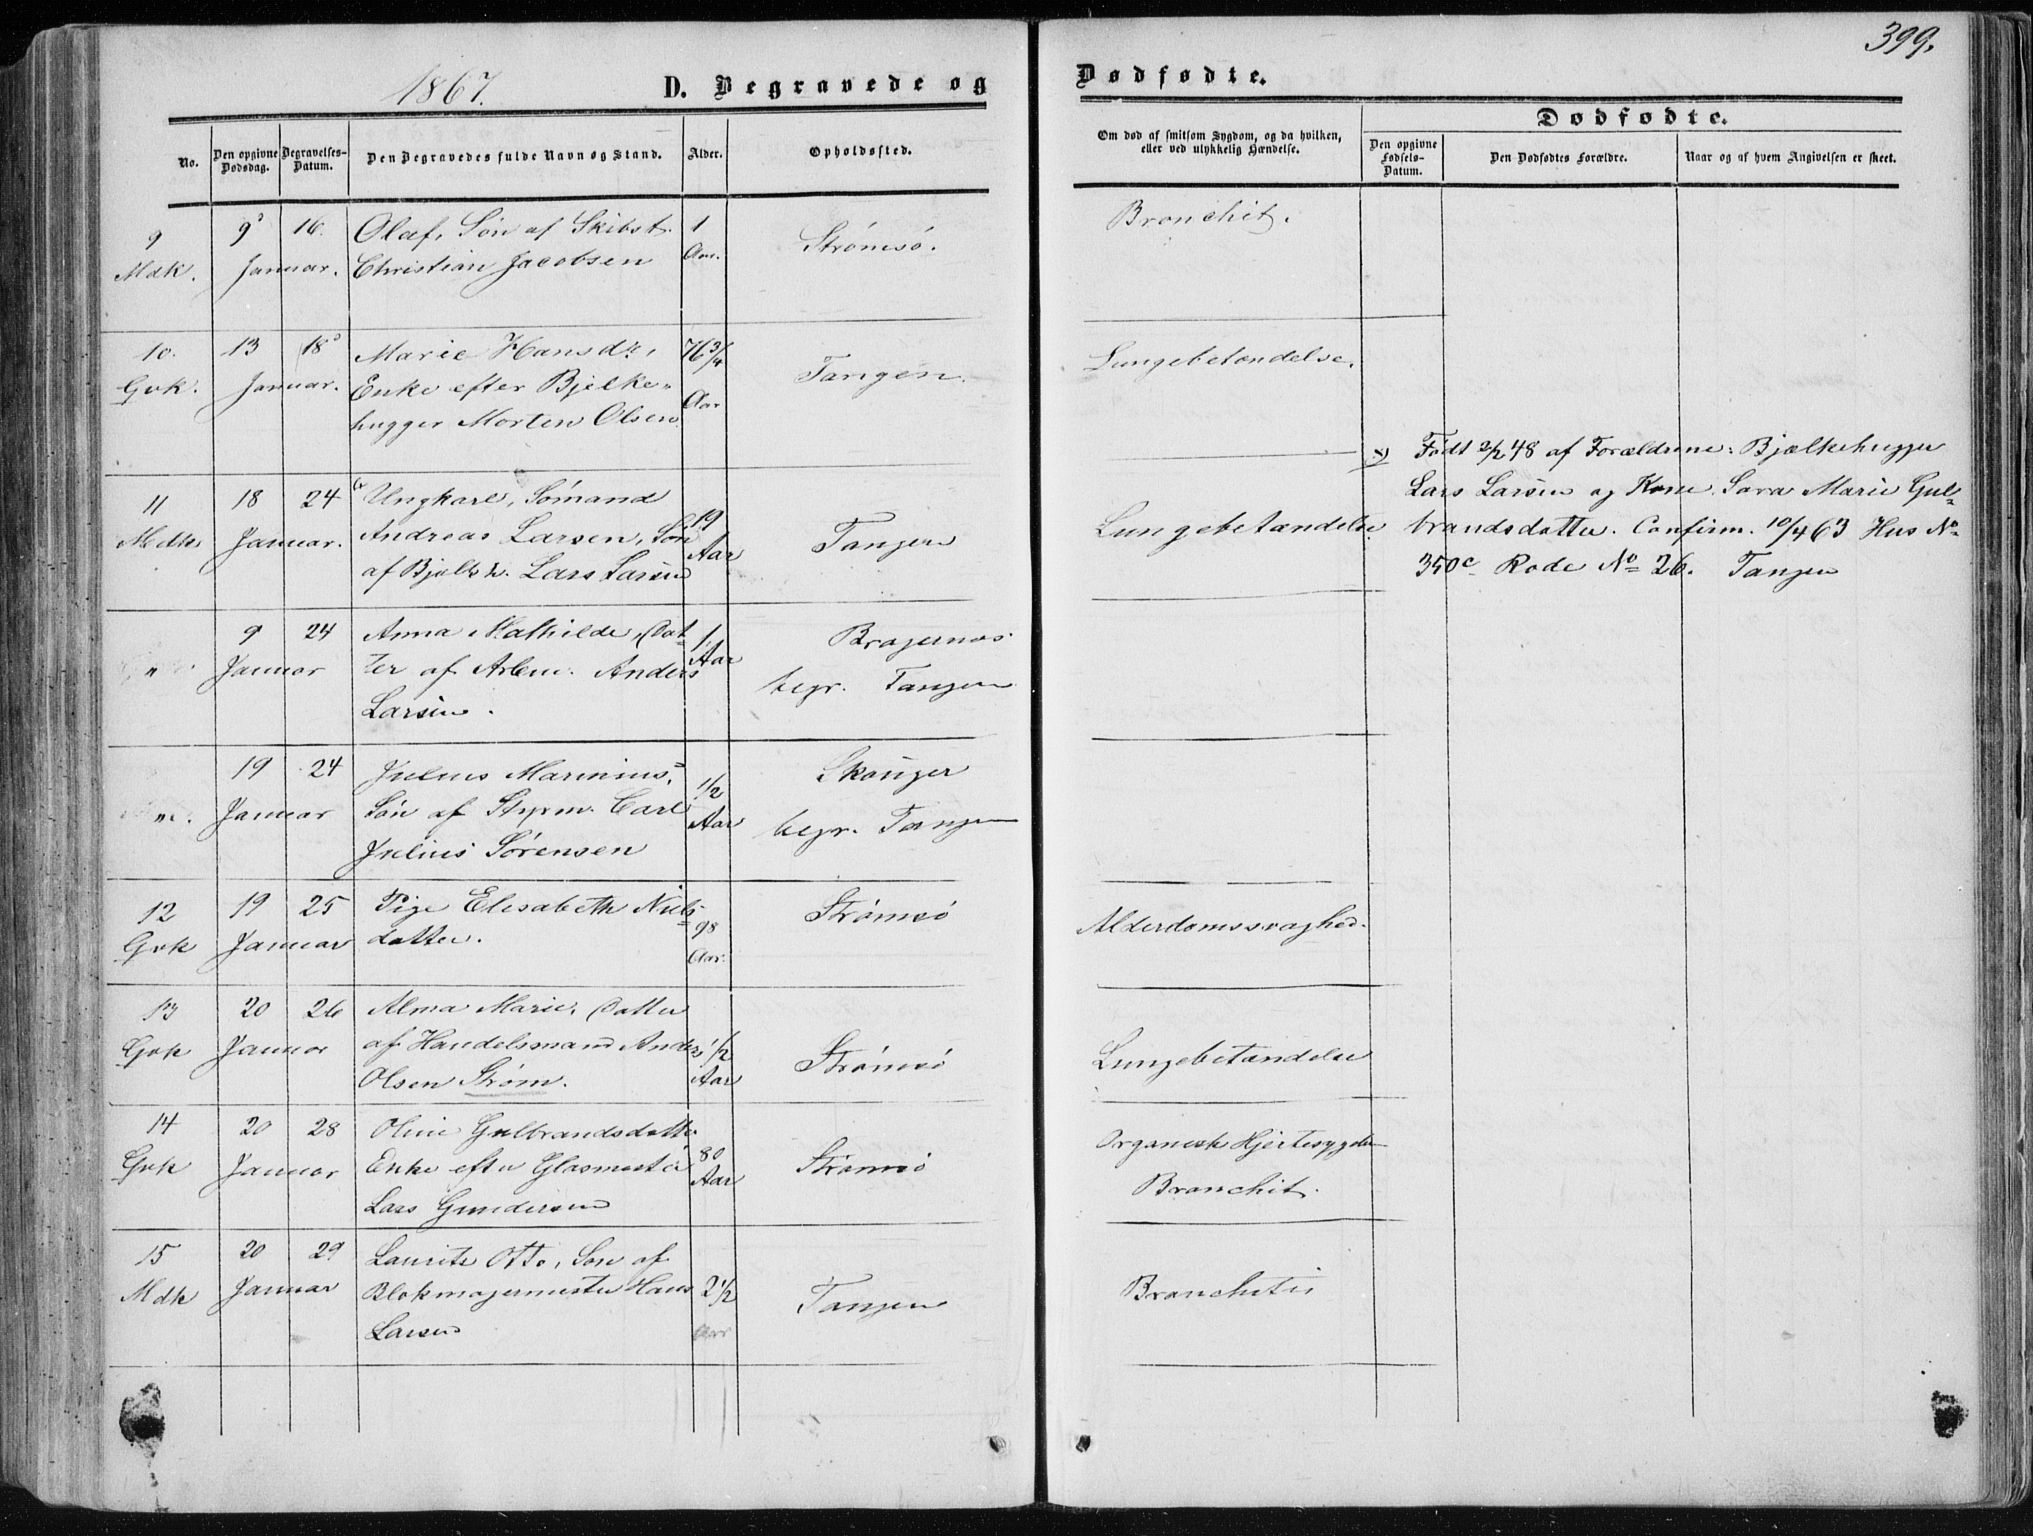 399.
1867.
D. Begravede og Dødfødte.
No.
Den opgivne Dødsdag.
Begravelses-Datum.
Den Begravedes fulde Navn og Stand.
Alder.
Opholdssted.
Om død af smitsom Sygdom, og da hvilken,
eller ved ulykkelig Hændelse.
Dødfødte.
Den opgivne Fødsels-Datum.
Den Dødfødtes Forældre.
Naar og af hvem Angivelsen er skeet.
9 9 16. Olaf, Søn af Skibst. 1 Strømsö. Bronchit.
Mdk. Januar. Christian Jacobsen Aar.
10. 13 18 Marie Hansdr, 76 3/4 Tangen. Lungebetændelse.
Gvk. Januar. Enke efter Bjelke-
hugger Morten Olsen Aar
11 18 24 Ungkarl, Sømand 19 Tangen Lungebetændelse.
Mdk Januar. Andreas Larsen, Søn Aar
af Bjelkh. Lars Larsen
x) Født 2/2 48 af Forældrene: Bjælkehugger
Lars Larsen og Kone Sara Marie Gul-
brandsdatter. Confirm. 10/4 63 Hus No
350c Rode No 26. Tangen
" 9 24 Anna Mathilde, Dat- 1 Bragernæs
Januar ter af Arbm. Anders Aar begr. Tangen
Larsen.
19 24 Julius Marinius, 1/2 Skouger
Januar Søn af Styrm. Carl Aar begr. Tangen
Julius Sørensen
12 19 25 Pige Elisabeth Niels- 98 Strømsö Alderdomssvaghed.
Gvk Januar datter. Aar.
13 20 26 Alma Marie, Datter 1/2 Strömsö Lungebetændelse
Gvk Januar af Handelsmand Anders Aar
Olsen Strøm.
14 20 28 Oline Gulbrandsdatter 80 Strömsö Organisk Hjertesygdom
Gvk Januar Enke efter Glasmester Aar Bronchit.
Lars Gundersen
15 20 29 Laurits Otto, Søn af 2 1/2 Tangen Bronchitis
Mdk Januar Blokmagermester Hans Aar
Larsen